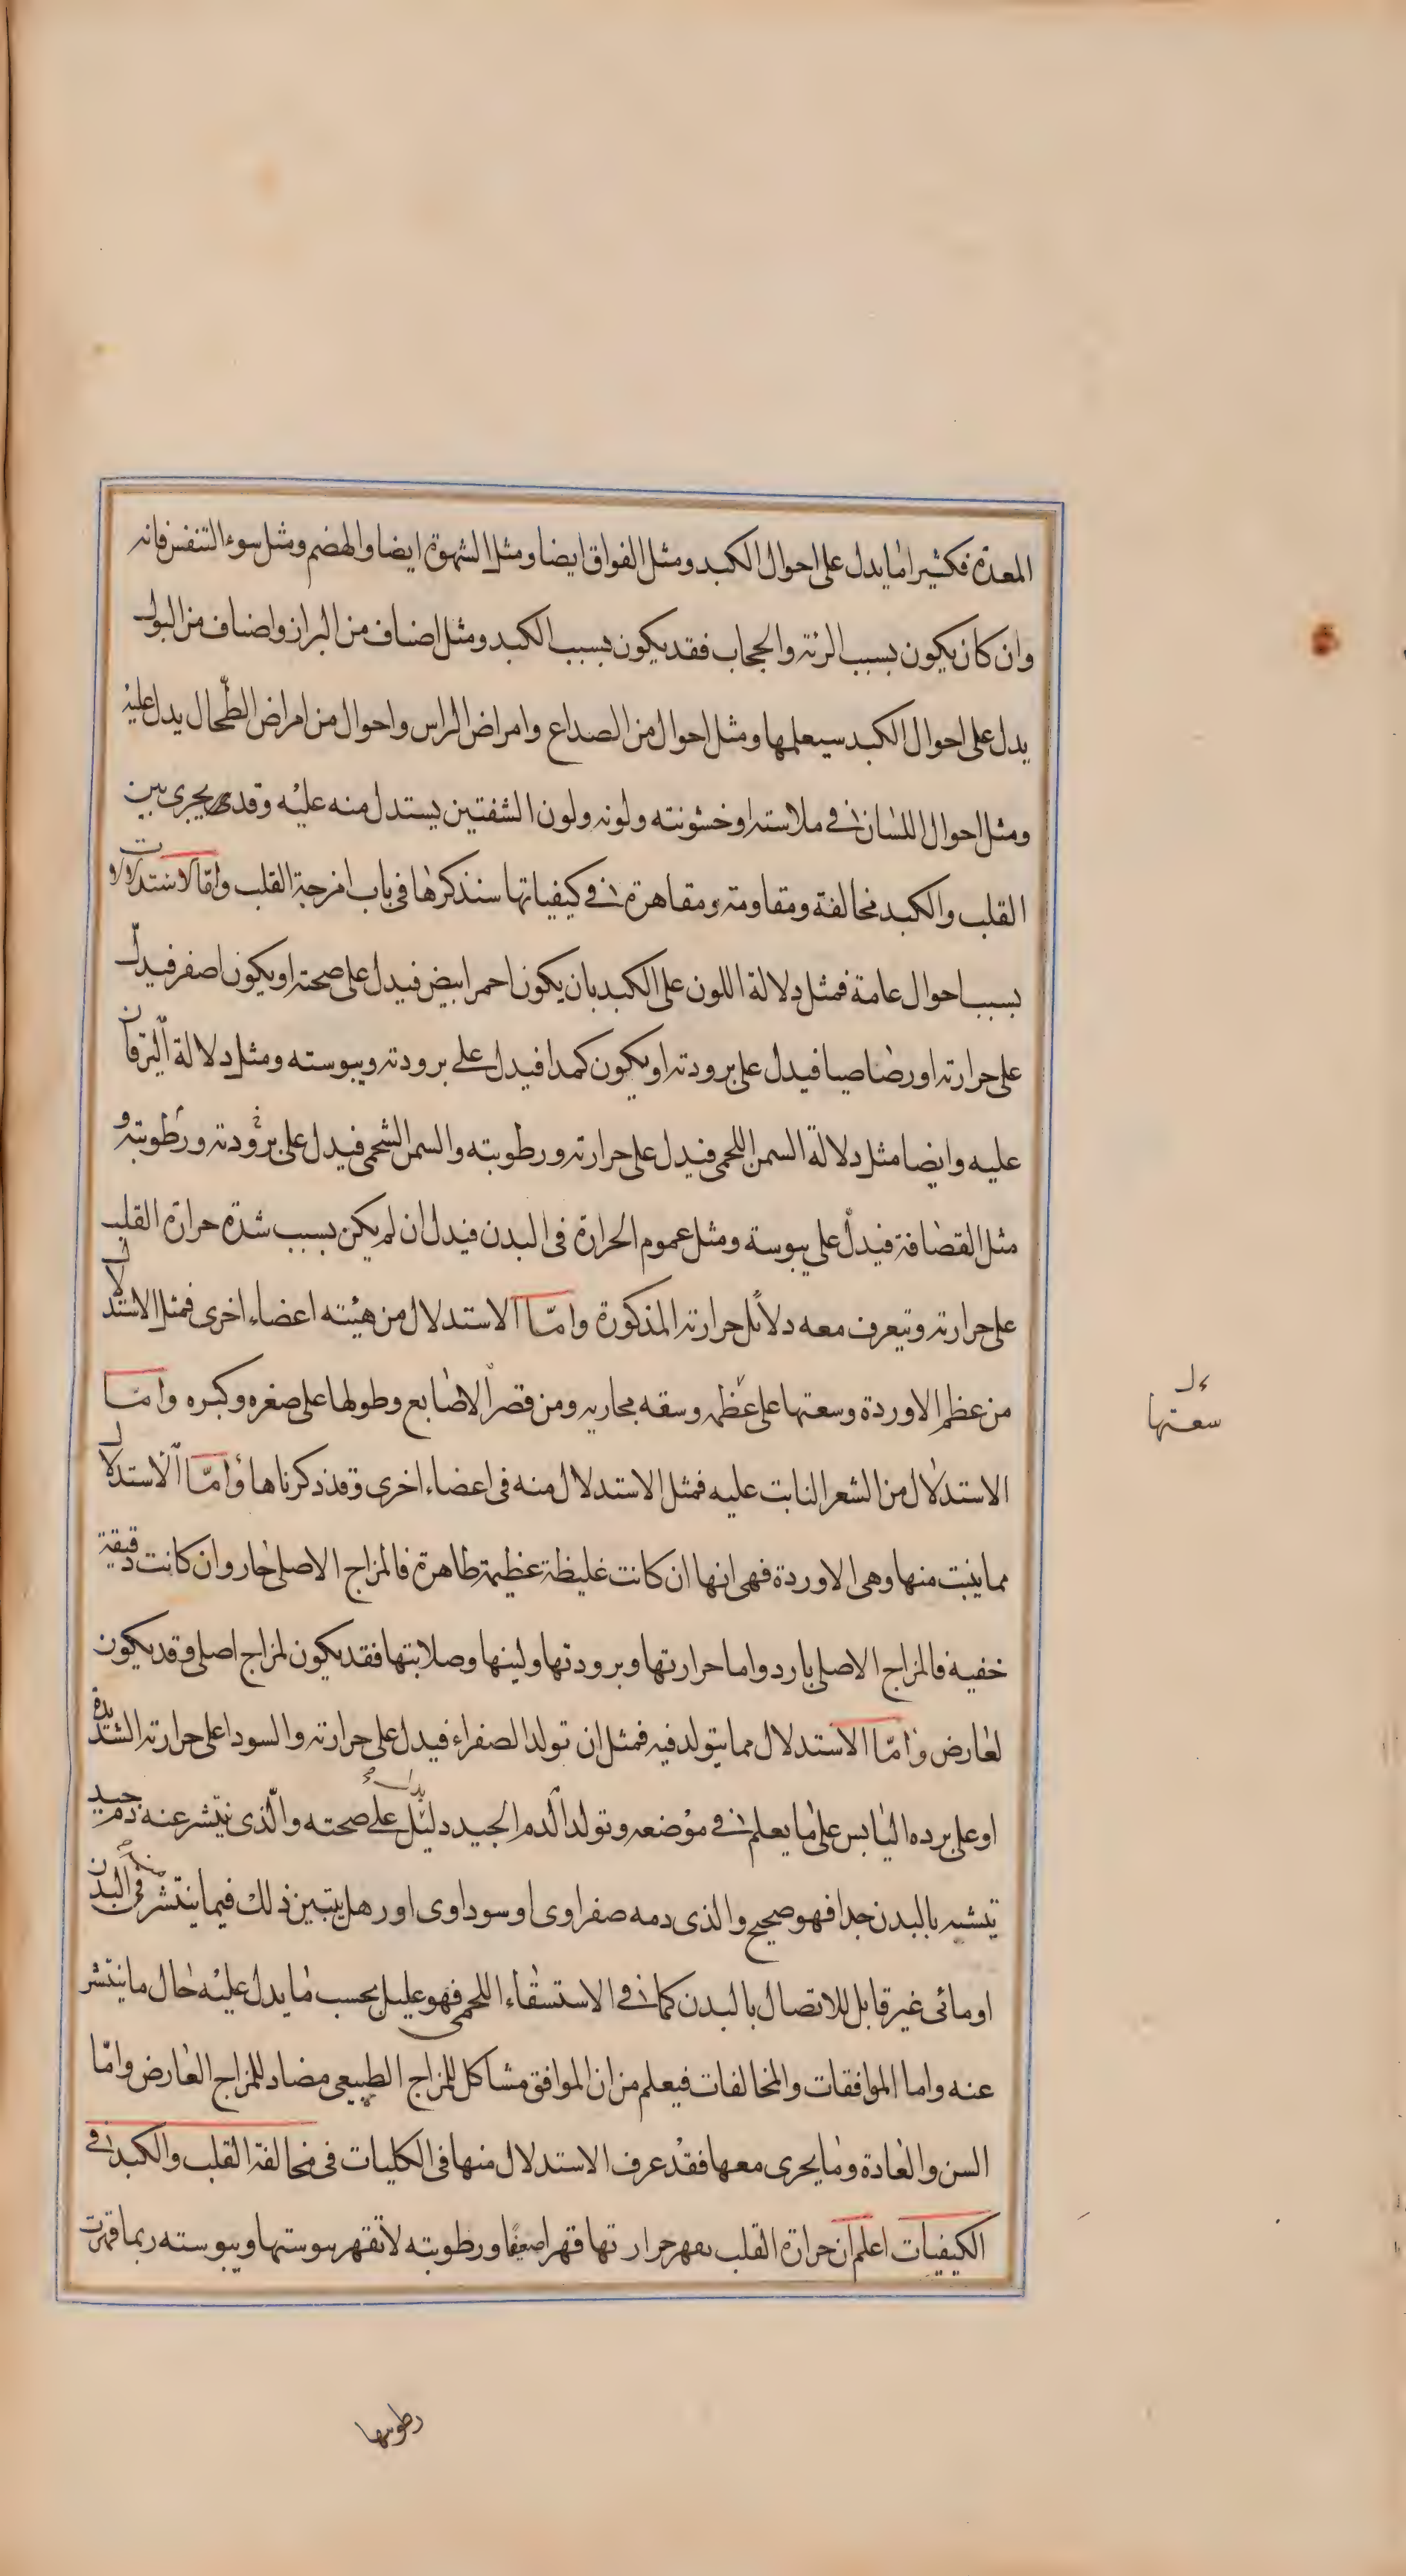 المعدة فكثيرا ما يدل على احوال الكبد ومثل الفواق ايضا ومثل الشهوة ايضا والهضم ومثل سوء التنفس فانه
وان كان يكون بسبب الرئة والحجاب فقد يكون بسبب الكبد ومثل اصناف من البراز واصناف من البول
يدل على احوال الكبد سيعلمها ومثل احوال من الصداع وامراض الراس واحوال من امراض الطحال يدل عليه
ومثل احوال اللسان في ملاسته وخشونته ولونه ولون الشفتين يستدل منه عليه وقد يجرى بين
القلب والكبد مخالفة ومقاومة ومقاهرة في كيفياتها سنذكرها في باب امزجة القلب واما الاستدلالات
بسبب احوال عامة فمثل دلالة اللون على الكبد بان يكون احمر ابيض فيدل على صحته او يكون اصفر فيدل
على حرارته او رصاصيا فيدل على برودته او يكون كمدا فيدل على برودته ويبوسته ومثل دلالة اليرقان
عليه وايضا مثل دلالة السمن اللحمى فيدل على حرارته ورطوبته والسمن الشحمى فيدل على برودته ورطوبته و
مثل القضافة فيدل على يبوسة ومثل عموم الحرارة في البدن فيدل ان لم يكن بسبب شدة حرارة القلب
على حرارته ويتعرف معه دلائل حرارته المذكورة وامّا الاستدلال من هيئته اعضاء اخرى فمثل الاستدلال
من عظم الاوردة وسعتها على عظمه وسعه مجاريه ومن قصر الاصابع وطولها على صغره وكبره وامّا
الاستدلال من الشعر النابت عليه فمثل الاستدلال منه في اعضاء اخرى وقد ذكرناها وامّا الاستدلال
مما ينبت منها وهى الاوردة فهى انها ان كانت غليظة عظيمة ظاهرة فالمزاج الاصلى حار وان كانت دقيقة
خفية فالمزاج الاصلى بارد واما حرارتها وبرودتها ولينها وصلابتها فقد يكون لمزاج اصلى وقد يكون
لعارض وامّا الاستدلال مما يتولد فيه فمثل ان تولد الصفراء فيدل على حرارته والسودا على حرارته الشديدة
او على برده اليابس على ما يعلم في موضعه وتولد الدم الجيد دليل على صحته والّذى ينتشر عنه دم جيد
يتشبه بالبدن جدا فهو صحيح والذى دمه صفراوى او سوداوى او رهل يتبين ذلك فيما ينتشر منه في البدن
او مائى غير قابل للاتصال بالبدن كما في الاستسقاء اللحمى فهو عليل بحسب ما يدل عليه حال ما ينتشر
عنه واما الموافقات والمخالفات فيعلم من ان الموافق مشاكل للمزاج الطبيعى مضاد للمزاج العارض وامّا
السن والعادة وما يجرى معها فقد عرف الاستدلال منها في الكليات في مخالفة القلب والكبد في
الكيفيات اعلم ان حرارة القلب يقهر حرارتها قهرا ضعيفا ورطوبته لا تقهر يبوستها ويبوسته ربما قهرت
سعتها
رطوبتها